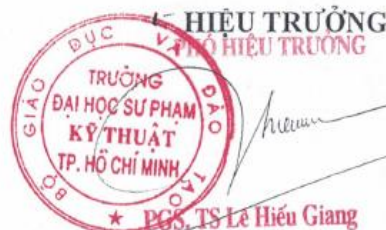 HIỆU TRƯỞNG
PHÓ HIỆU TRƯỞNG
BỘ GIÁO DỤC VÀ ĐÀO TẠO
TRƯỜNG
ĐẠI HỌC SƯ PHẠM
KỸ THUẬT
TP. HỒ CHÍ MINH
PGS. TS Lê Hiếu Giang